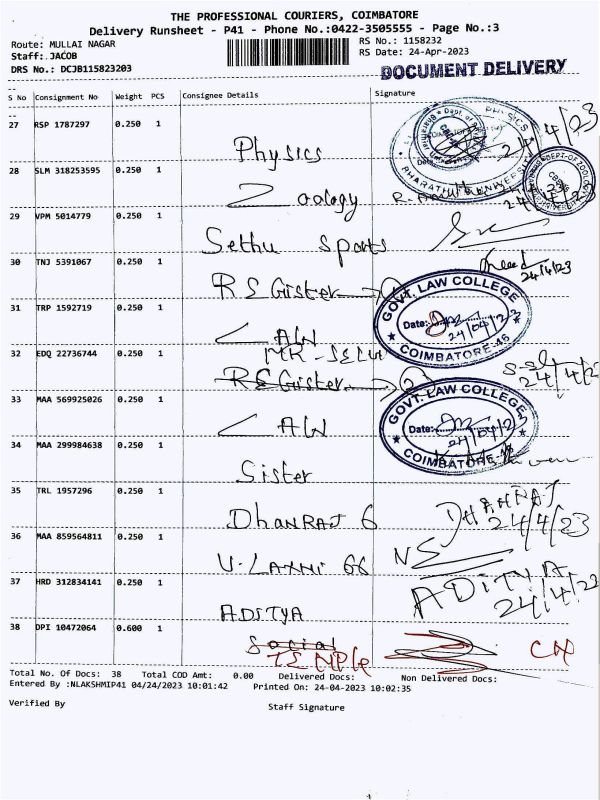 THE PROFESSIONAL COURIERS, COIMBATORE
Delivery Runsheet - P41 - Phone No.:0422-3505555 - Page No.:3
Route: MULLAI NAGAR RS No.: 1158232
Staff: JACOB RS Date: 24-Apr-2023
DRS No.: DCJB115823203 DOCUMENT DELIVERY
S No Consignment No Weight PCS Consignee Details Signature
27 RSP 1787297 0.250 1 Physics 24/4/23
28 SLM 318253595 0.250 1 Zoology
29 VPM 5014779 0.250 1 Sethu Sports
30 TNJ 5391067 0.250 1 REGister 24/4/23
GOVT. LAW COLLEGE
Date: 24/04/23
COIMBATORE-46
31 TRP 1592719 0.250 1 LAW
32 EDQ 22736744 0.250 1 REGister 24/4/23
GOVT. LAW COLLEGE
Date: 24/04/23
COIMBATORE-46
33 MAA 569925026 0.250 1 LAW
34 MAA 299984638 0.250 1 Sister
35 TRL 1957296 0.250 1 DhanRaj 6 DHANRAJ 24/4/23
36 MAA 859564811 0.250 1 V. Laxmi 66
37 HRD 312834141 0.250 1 ADITYA ADITYA 24/4/23
38 DPI 10472064 0.600 1 Social
TEMPle
Total No. Of Docs: 38 Total COD Amt: 0.00 Delivered Docs: Non Delivered Docs:
Entered By :NLAKSHMIP41 04/24/2023 10:01:42 Printed On: 24-04-2023 10:02:35
Verified By Staff Signature